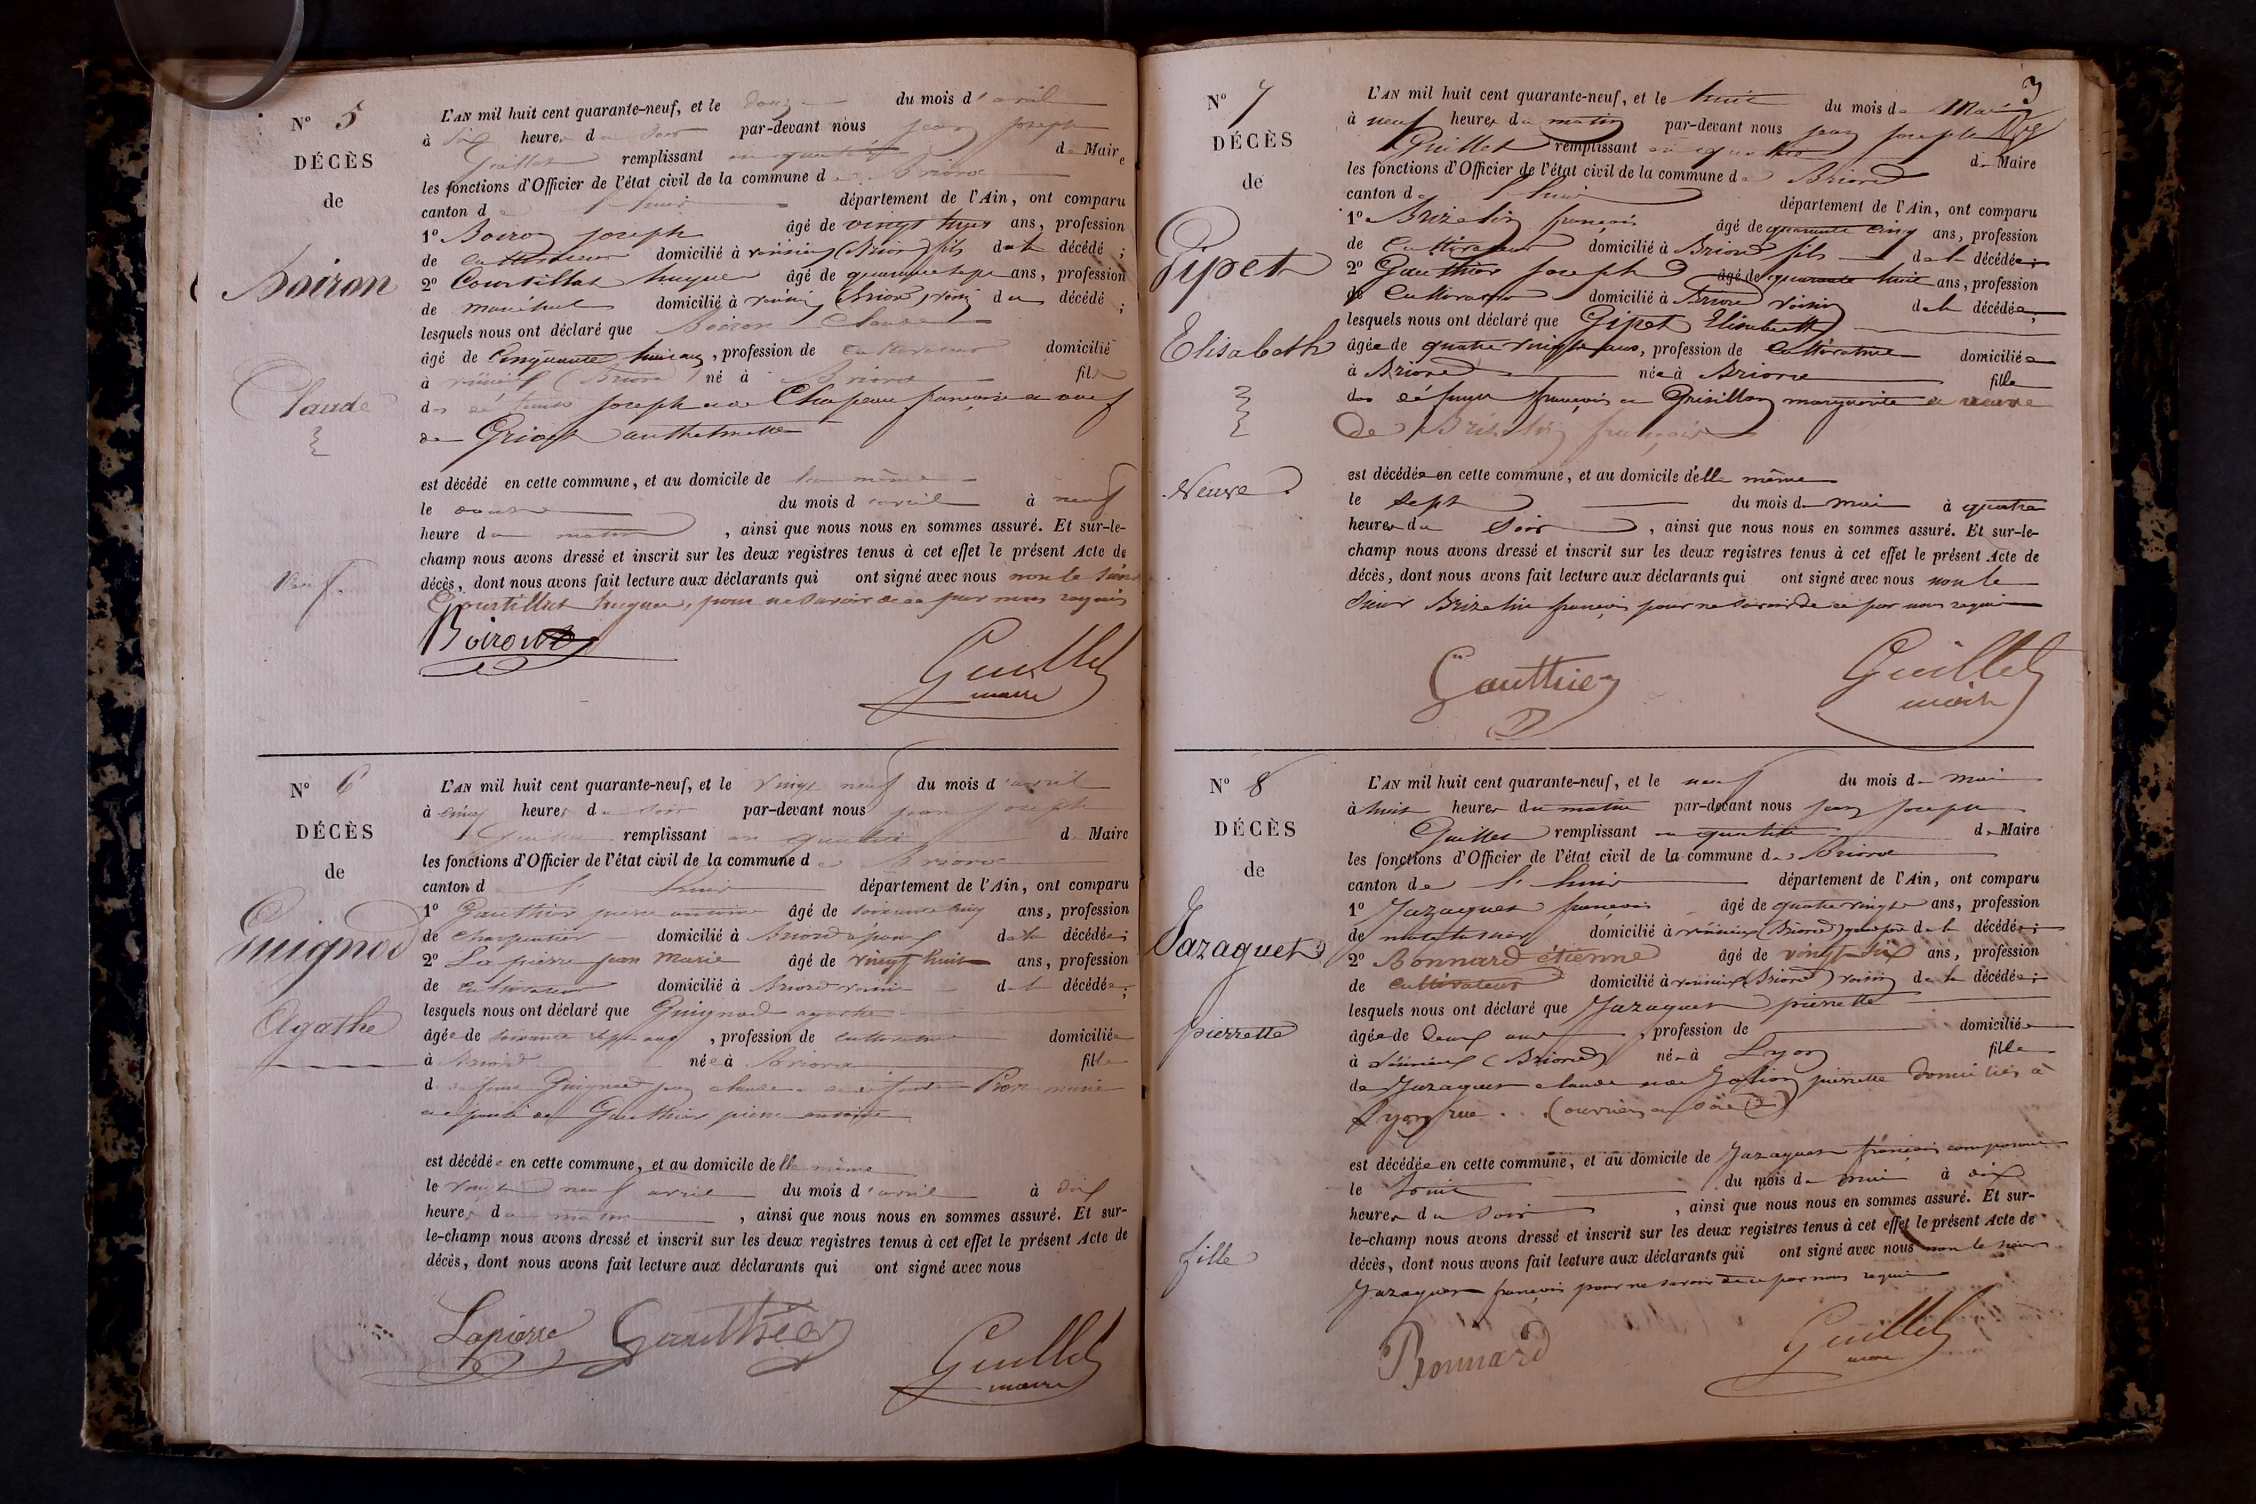 N° 5
DÉCÈS
de
Boiron
Claude
Veuf.
L'AN mil huit cent quarante-neuf, et le douze du mois d'avril
à six heures du soir par-devant nous jean joseph
Guillet remplissant en qualité de Maire
les fonctions d'Officier de l'état civil de la commune de Briord
canton de l'huis département de l'Ain, ont comparu
1° Boiron joseph âgé de vingt ans, profession
de cultivateur domicilié à vérizieu (Briord) fils du décédé ;
2° Courtillat hugue âgé de quarante sept ans, profession
de maréchal domicilié à (Briord) voisin du décédé ;
lesquels nous ont déclaré que Boiron Claude
âgé de Cinquante huit ans, profession de cultivateur domicilié
à (Briord) né à Briord fils
des défunts joseph et de Chapeau françoise et veuf
de
est décédé en cette commune, et au domicile de lui même
le douze du mois d'avril à neuf
heure du matin, ainsi que nous nous en sommes assuré. Et sur-le-
champ nous avons dressé et inscrit sur les deux registres tenus à cet effet le présent Acte de
décès, dont nous avons fait lecture aux déclarants qui ont signé avec nous non le sieur
Courtillat hugue, pour ne savoir de ce par nous requis
Boiron
Guillet
maire
N° 6
DÉCÈS
de
Guignod
Agathe
L'AN mil huit cent quarante-neuf, et le vingt neuf du mois d'avril
à cinq heures du soir par-devant nous jean joseph
Guillet remplissant en qualité de Maire
les fonctions d'Officier de l'état civil de la commune de Briord
canton d l'huis département de l'Ain, ont comparu
1° Gauthier pierre antoine âgé de soixante cinq ans, profession
de charpentier domicilié à Briord époux de la décédée;
2° Lapierre jean Marie âgé de vingt huit ans, profession
de cultivateur domicilié à Briord voisin de la décédée;
lesquels nous ont déclaré que Guignod agathe
âgée de soixante sept ans, profession de cultivatrice domiciliée
à Briord née à Briord fille
de défunt Guignod jean claude et de défunte marie
et épouse de Gauthier pierre antoine
est décédée en cette commune, et au domicile d'elle même
le vingt neuf avril du mois d'avril à dix
heures du matin, ainsi que nous nous en sommes assuré. Et sur-
le-champ nous avons dressé et inscrit sur les deux registres tenus à cet effet le présent Acte de
décès, dont nous avons fait lecture aux déclarants qui ont signé avec nous
Lapierre Gauthier
Guillet
maire
3
N° 7
DÉCÈS
de
Gipet
Elisabeth
Veuve
L'AN mil huit cent quarante-neuf, et le huit du mois de Mai
à neuf heures du matin par-devant nous jean joseph
Guillet remplissant en qualité de Maire
les fonctions d'Officier de l'état civil de la commune de Briord
canton de l'huis département de l'Ain, ont comparu
1° Brizelin françois âgé de quarante cinq ans, profession
de Cultivateur domicilié à Briord fils de la décédée;
2° Gauthier joseph âgé de quarante huit ans, profession
de Cultivateur domicilié à Briord voisin de la décédée;
lesquels nous ont déclaré que Gipet Elisabeth
âgée de quatre vingts ans, profession de Cultivatrice domiciliée
à Briord née à Briord fille
des défunts françois et Grisillon marguerite et veuve
de Brizelin françois
est décédée en cette commune, et au domicile d'elle même
le Sept du mois de mai à quatre
heures du Soir, ainsi que nous nous en sommes assuré. Et sur-le-
champ nous avons dressé et inscrit sur les deux registres tenus à cet effet le présent Acte de
décès, dont nous avons fait lecture aux déclarants qui ont signé avec nous non le
Sieur Brizelin françois pour ne savoir de ce par nous requis
Gauthier
Guillet
maire
N° 8
DÉCÈS
de
Jazaguet
pierrette
fille
L'AN mil huit cent quarante-neuf, et le neuf du mois de mai
à huit heures du matin par-devant nous jean joseph
Guillet remplissant en qualité de Maire
les fonctions d'Officier de l'état civil de la commune de Briord
canton de l'huis département de l'Ain, ont comparu
1° Jazaguet françois âgé de quatre vingts ans, profession
de domicilié à (Briord) de la décédée;
2° Bonnard étienne âgé de vingt six ans, profession
de cultivateur domicilié à (Briord) voisin de la décédée;
lesquels nous ont déclaré que Jazaguet pierrette
âgée de deux ans, profession de domiciliée
à (Briord) née à Lyon fille
de Jazaguet claude et de pierrette domiciliés à
Lyon rue . . (ouvriers en soie)
est décédée en cette commune, et au domicile de Jazaguet françois
le huit du mois de mai à dix
heures du soir, ainsi que nous nous en sommes assuré. Et sur-
le-champ nous avons dressé et inscrit sur les deux registres tenus à cet effet le présent Acte de
décès, dont nous avons fait lecture aux déclarants qui ont signé avec nous non le sieur
Jazaguet françois pour ne savoir de ce par nous requis
Bonnard
Guillet
maire